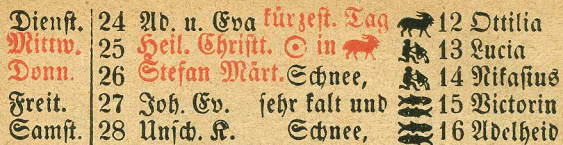 Dienſt. 24 Ad. u. Eva kürzeſt. Tag 12 Ottilia
Mittw. 25 Heil. Chriſtt. ☉ in 13 Lucia
Donn. 26 Stefan Märt. Schnee, 14 Nikaſius
Freit. 27 Joh. Ev. ſehr kalt und 15 Victorin
Samſt. 28 Unſch. K. Schnee, 16 Adelheid